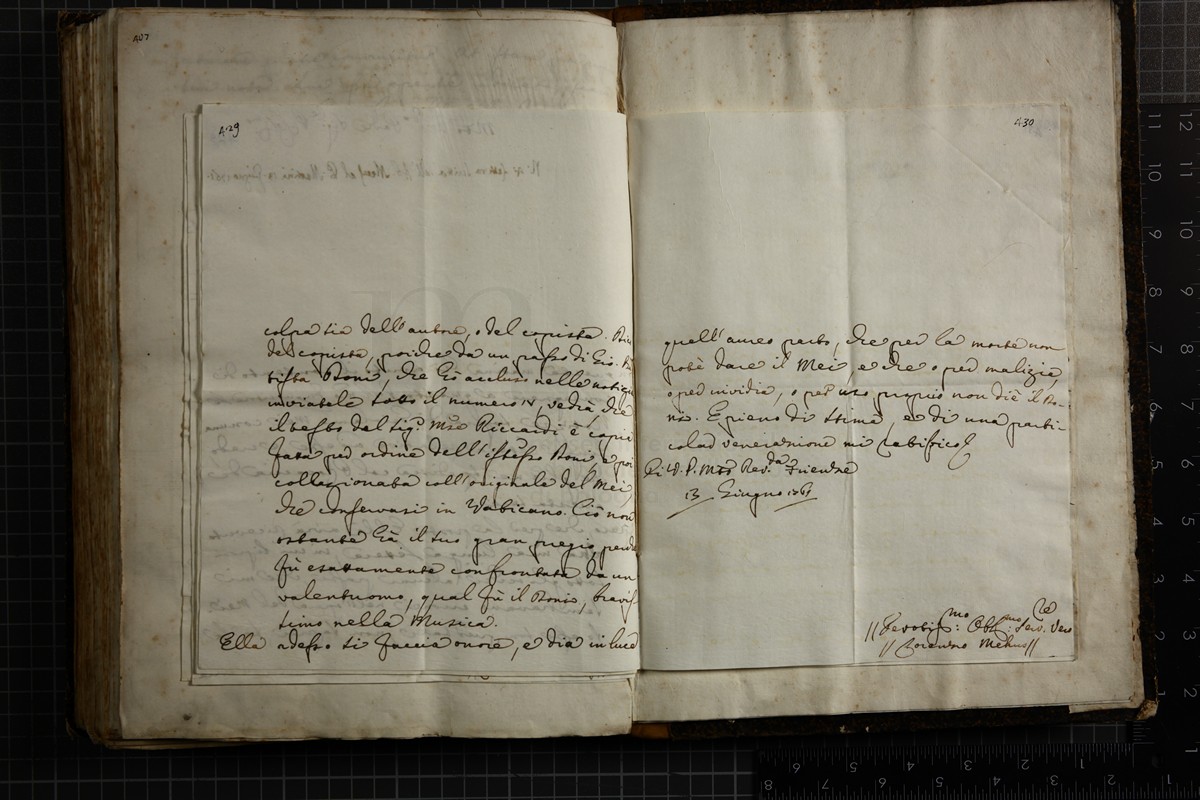 407
429
colpa sia dell'autore, o del copista.
del copista, poiche da un passo di Gio.
tista Doni, che hò acluso nelle notizie
inviatele sotto il numero IV, vedrà, che
il testo del Sig.r Mse Riccardi è copi
fata per ordine dell'istesso Doni, e poi
collazionata coll'originale del Mei,
che conservasi in Vaticano. Ciò non
ostante hà il suo gran pregio, perche
fù esattamente confrontata da un
valentuomo, qual fù il Donio, bravis
simo nella Musica.
Ella adesso si faccia onore, e dia in luce
430
quell'aureo parto, che per la morte non
potè dare il Mei, e che o per malizia,
o per invidia, o per uso proprio non diè il Do-
nio. E pieno di stima, e di una parti
colar venerazione mi ratifico
Di V. P. M. Rev.da Firenze
13 Giugno 1761
Devotis.mo Obb.mo Serv. Vero
Lorenzo Mehus